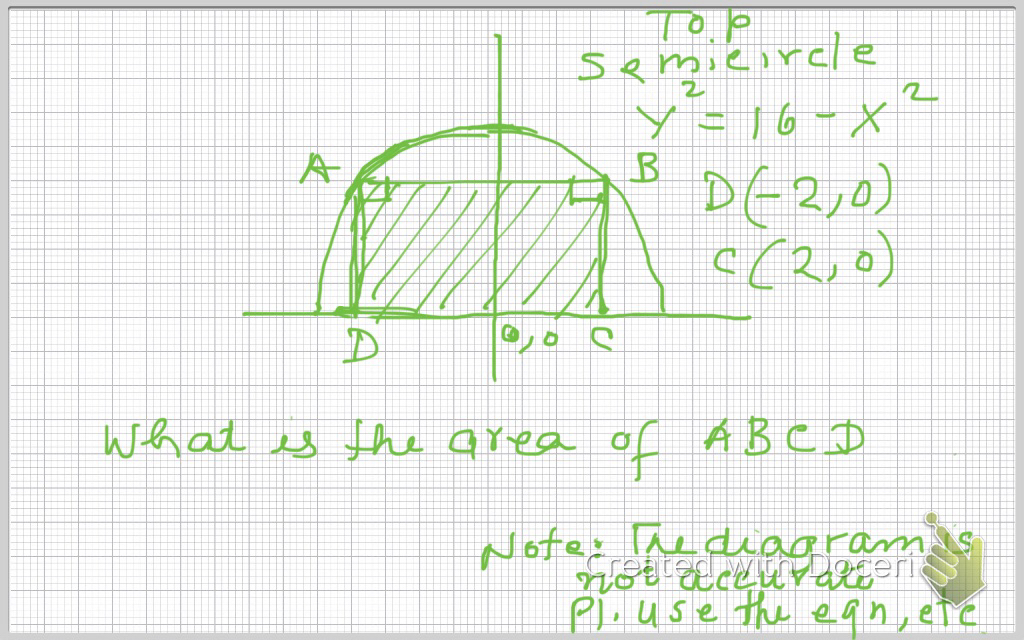 Top
Semicircle
Y² = 16 - X²
A
B
D(-2,0)
C(2,0)
D
0,0
C
What is the area of ABCD
Note: The diagram is
not accurate
Pl. use the eqn, etc
Created with Doceri